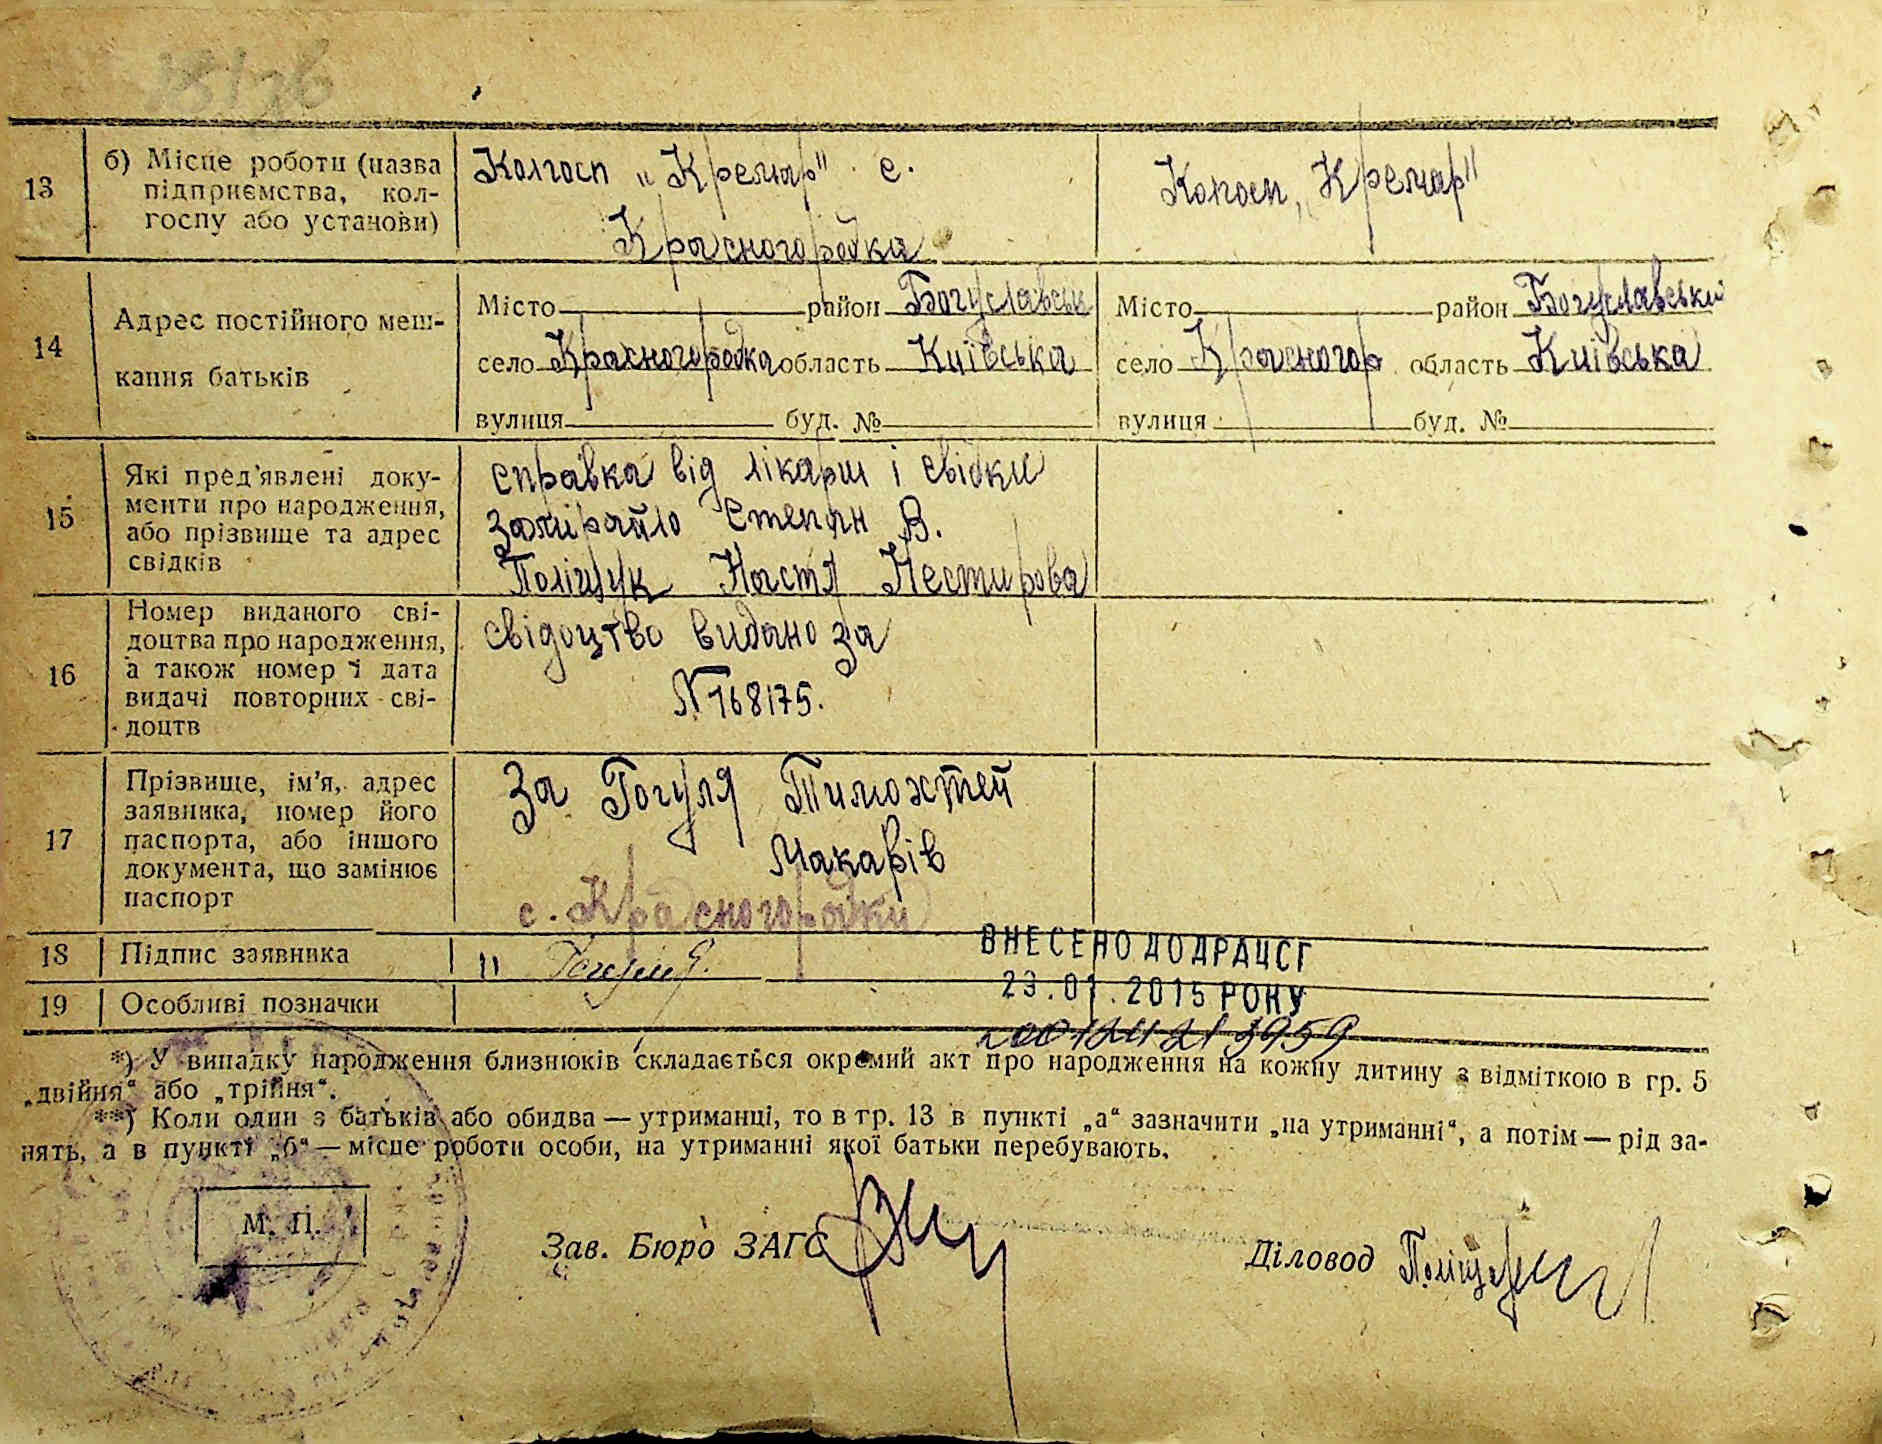 13
б) Місце роботи (назва
підприємства, кол-
госпу або установи)
Колгосп „Кремар" с.
Красногородка
Колгосп „Кремар"
14
Адрес постійного меш-
кання батьків
Місто район Богуславськ
село Красногородка область Київська
вулиця буд. №
Місто район Богуславський
село Красногор область Київська
вулиця буд. №
15
Які пред'явлені доку-
менти про народження,
або прізвище та адрес
свідків
справка від лікарш і свідки
Степан В.
Поліщук Настя Нестирова
16
Номер виданого сві-
доцтва про народження,
а також номер і дата
видачі повторних сві-
доцтв
свідоцтво видано за
N 168175.
17
Прізвище, ім'я, адрес
заявника, номер його
паспорта, або іншого
документа, що замінює
паспорт
За Гогуля Тимохтей
Макарів
с. Красногородки
18
Підпис заявника
19
Особливі позначки
ВНЕСЕНО ДО ДРАЦСГ
23.01.2015 РОКУ
*) У випадку народження близнюків складається окремий акт про народження на кожну дитину з відміткою в гр. 5
„двійня“ або „трійня“.
**) Коли один з батьків або обидва — утриманці, то в гр. 13 в пункті „а“ зазначити „на утриманні“, а потім — рід за-
нять, а в пункті „б“ — місце роботи особи, на утриманні якої батьки перебувають.
М. П.
Зав. Бюро ЗАГС
Діловод